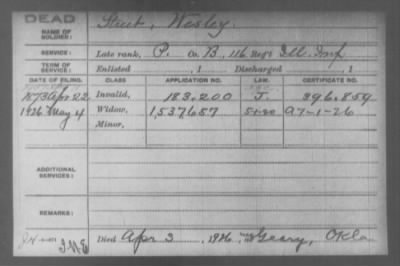 DEAD
NAME OF SOLDIER: Street, Wesley.
SERVICE: Late rank, P. Co. B, 116 Reg't Ill. Inf
TERM OF SERVICE: Enlisted , 1 Discharged , 1
DATE OF FILING. CLASS APPLICATION NO. LAW. CERTIFICATE NO.
1873 Apr 22 Invalid, 183.200 J. 396.859
1926 May 4 Widow, 1,537,657 5-1-20 A7-1-26
Minor,
ADDITIONAL SERVICES:
REMARKS:
Died Apr 3 , 1926, at Geary, Okla